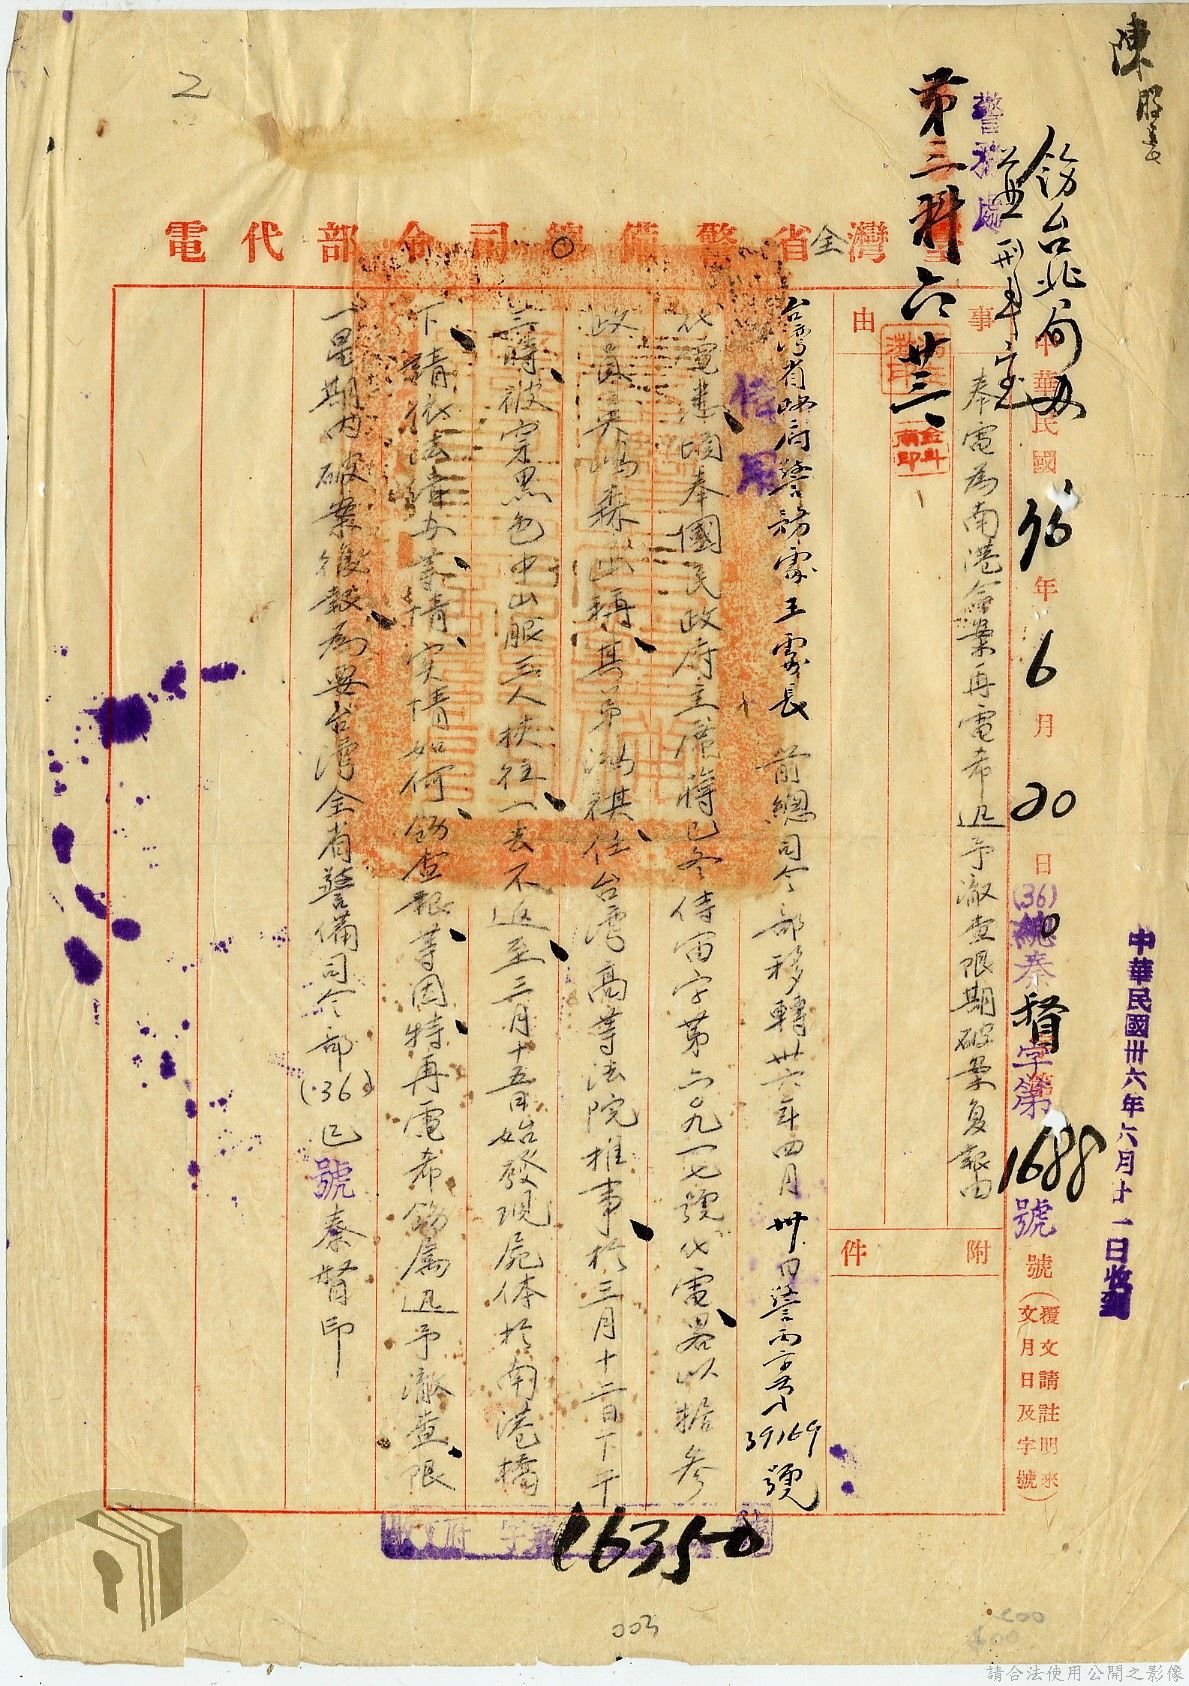 陳股長
飭台北局办
並刑事室
警務處
第三科 六 廿三
中華民國卅六年六月廿一日收到
中華民國36年6月20日
(36)總秦督字第1688號
號(覆文請註明來文月日及字號)
台灣省全警備司令部代電
事由
奉電為南港命案再電希迅予澈查限期破案复報由
附件
台灣省政府警務處王處長 前總司令部移轉卅六年四月卅日警丙字第39169號
代電悉頃奉國民政府主席蔣巳冬侍西字第六九一七號代電畧以據參
政員吳鴻森函稱其弟鴻祺任台灣高等法院推事於三月十二日下午
三時被穿黑色中山服五人挾往一去不返至三月十五日始發現屍体於南港橋
下請依法緝办等情实情如何飭查報等因特再電希飭屬迅予澈查限
一星期內破案復報為要台灣全省警備司令部(36)巳號秦督印
16350
003
2
請合法使用公開之影像